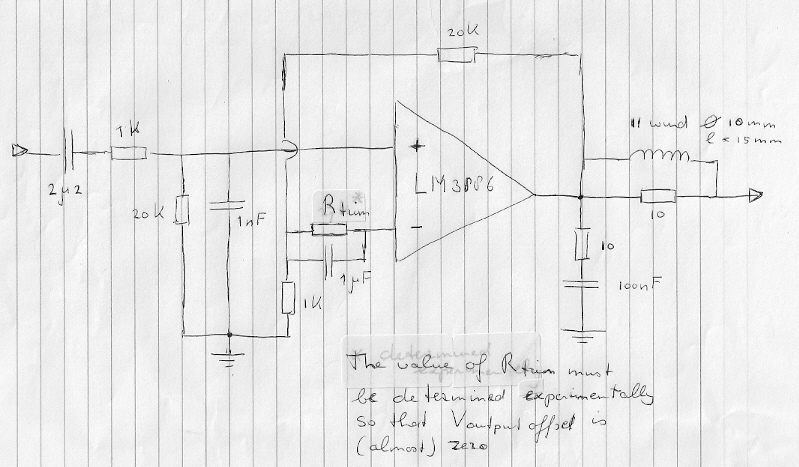 20K
1K
2µ2
20K
1nF
+
LM3886
-
Rtrim
1µF
1K
11 wind Ø 10mm
l = 15mm
10
10
100nF
The value of Rtrim must
be determined experimentally
so that Voutput offset is
(almost) zero